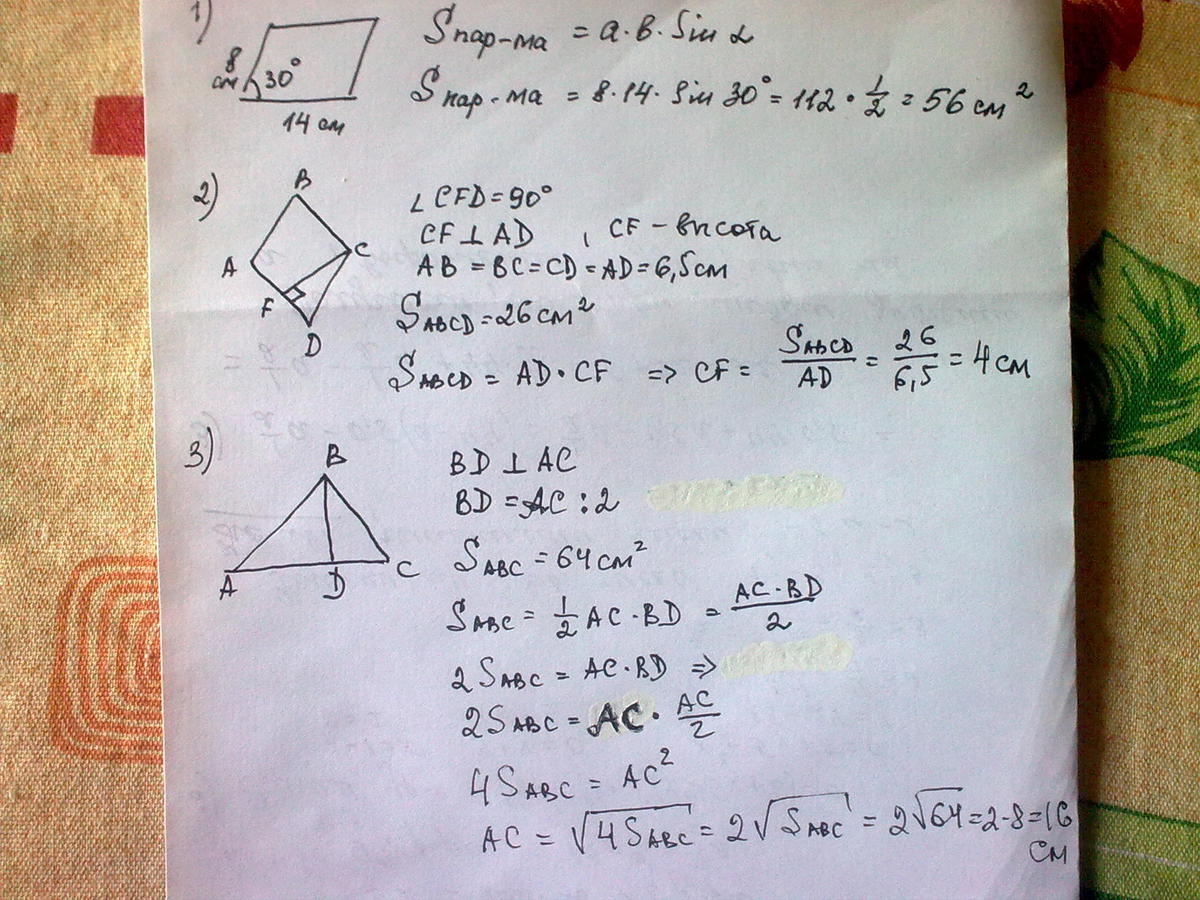 1)
8 см
30°
14 см
Sпар-ма = a·b·Sin α
Sпар-ма = 8·14·Sin 30° = 112 · 1/2 = 56 см²
2)
B
A
C
F
D
∠CFD = 90°
CF ⊥ AD , CF – высота
AB = BC = CD = AD = 6,5 см
SABCD = 26 см²
SABCD = AD · CF => CF = SABCD/AD = 26/6,5 = 4 см
3)
B
A
D
C
BD ⊥ AC
BD = AC : 2
SABC = 64 см²
SABC = 1/2 AC · BD = AC·BD/2
2SABC = AC · BD =>
2SABC = AC · AC/2
4SABC = AC²
AC = √4SABC = 2√SABC = 2√64 = 2·8 = 16 см